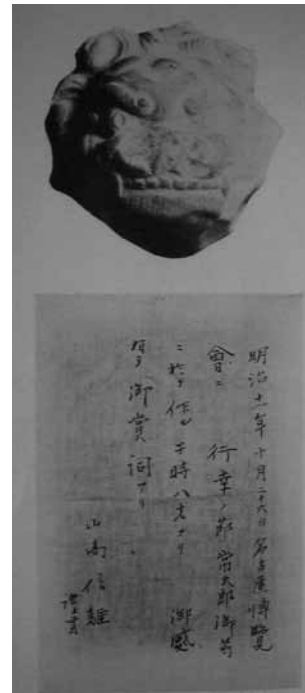 明治十一年十月二十六日名古屋博覧
會ニ 行幸ノ節 太郎御前
ニ於テ作ル 于時八才ナリ 御感
御賞詞アリ
山高信離
謹書